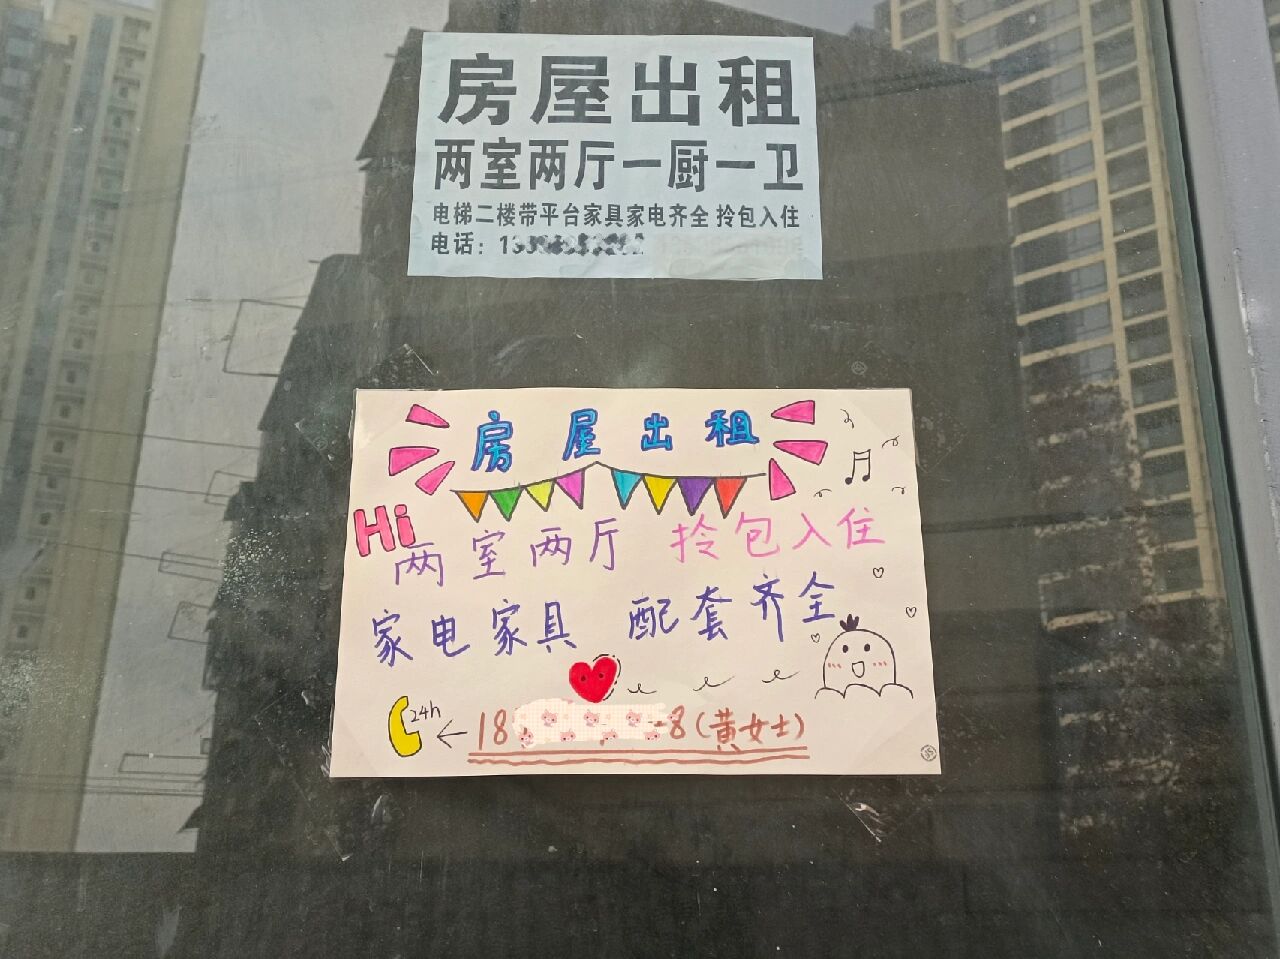 房屋出租
两室两厅一厨一卫
电梯二楼带平台家具家电齐全 拎包入住
电话：
房屋出租
Hi
两室两厅 拎包入住
家电家具 配套齐全
24h
18 8(黄女士)